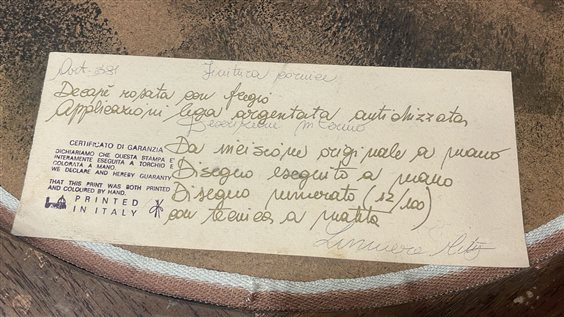 Art. 381 Finitura cornice
Decapè rosata con fregio
Applicazioni lega argentata antichizzata
Descrizione
Da incisione originale a mano
Disegno eseguito a mano
Disegno numerato (12/100)
con tecnica a matita
CERTIFICATO DI GARANZIA
DICHIARIAMO CHE QUESTA STAMPA È
INTERAMENTE ESEGUITA A TORCHIO E
COLORATA A MANO.
WE DECLARE AND HEREBY GUARANTY
THAT THIS PRINT WAS BOTH PRINTED
AND COLOURED BY HAND.
PRINTED
IN ITALY